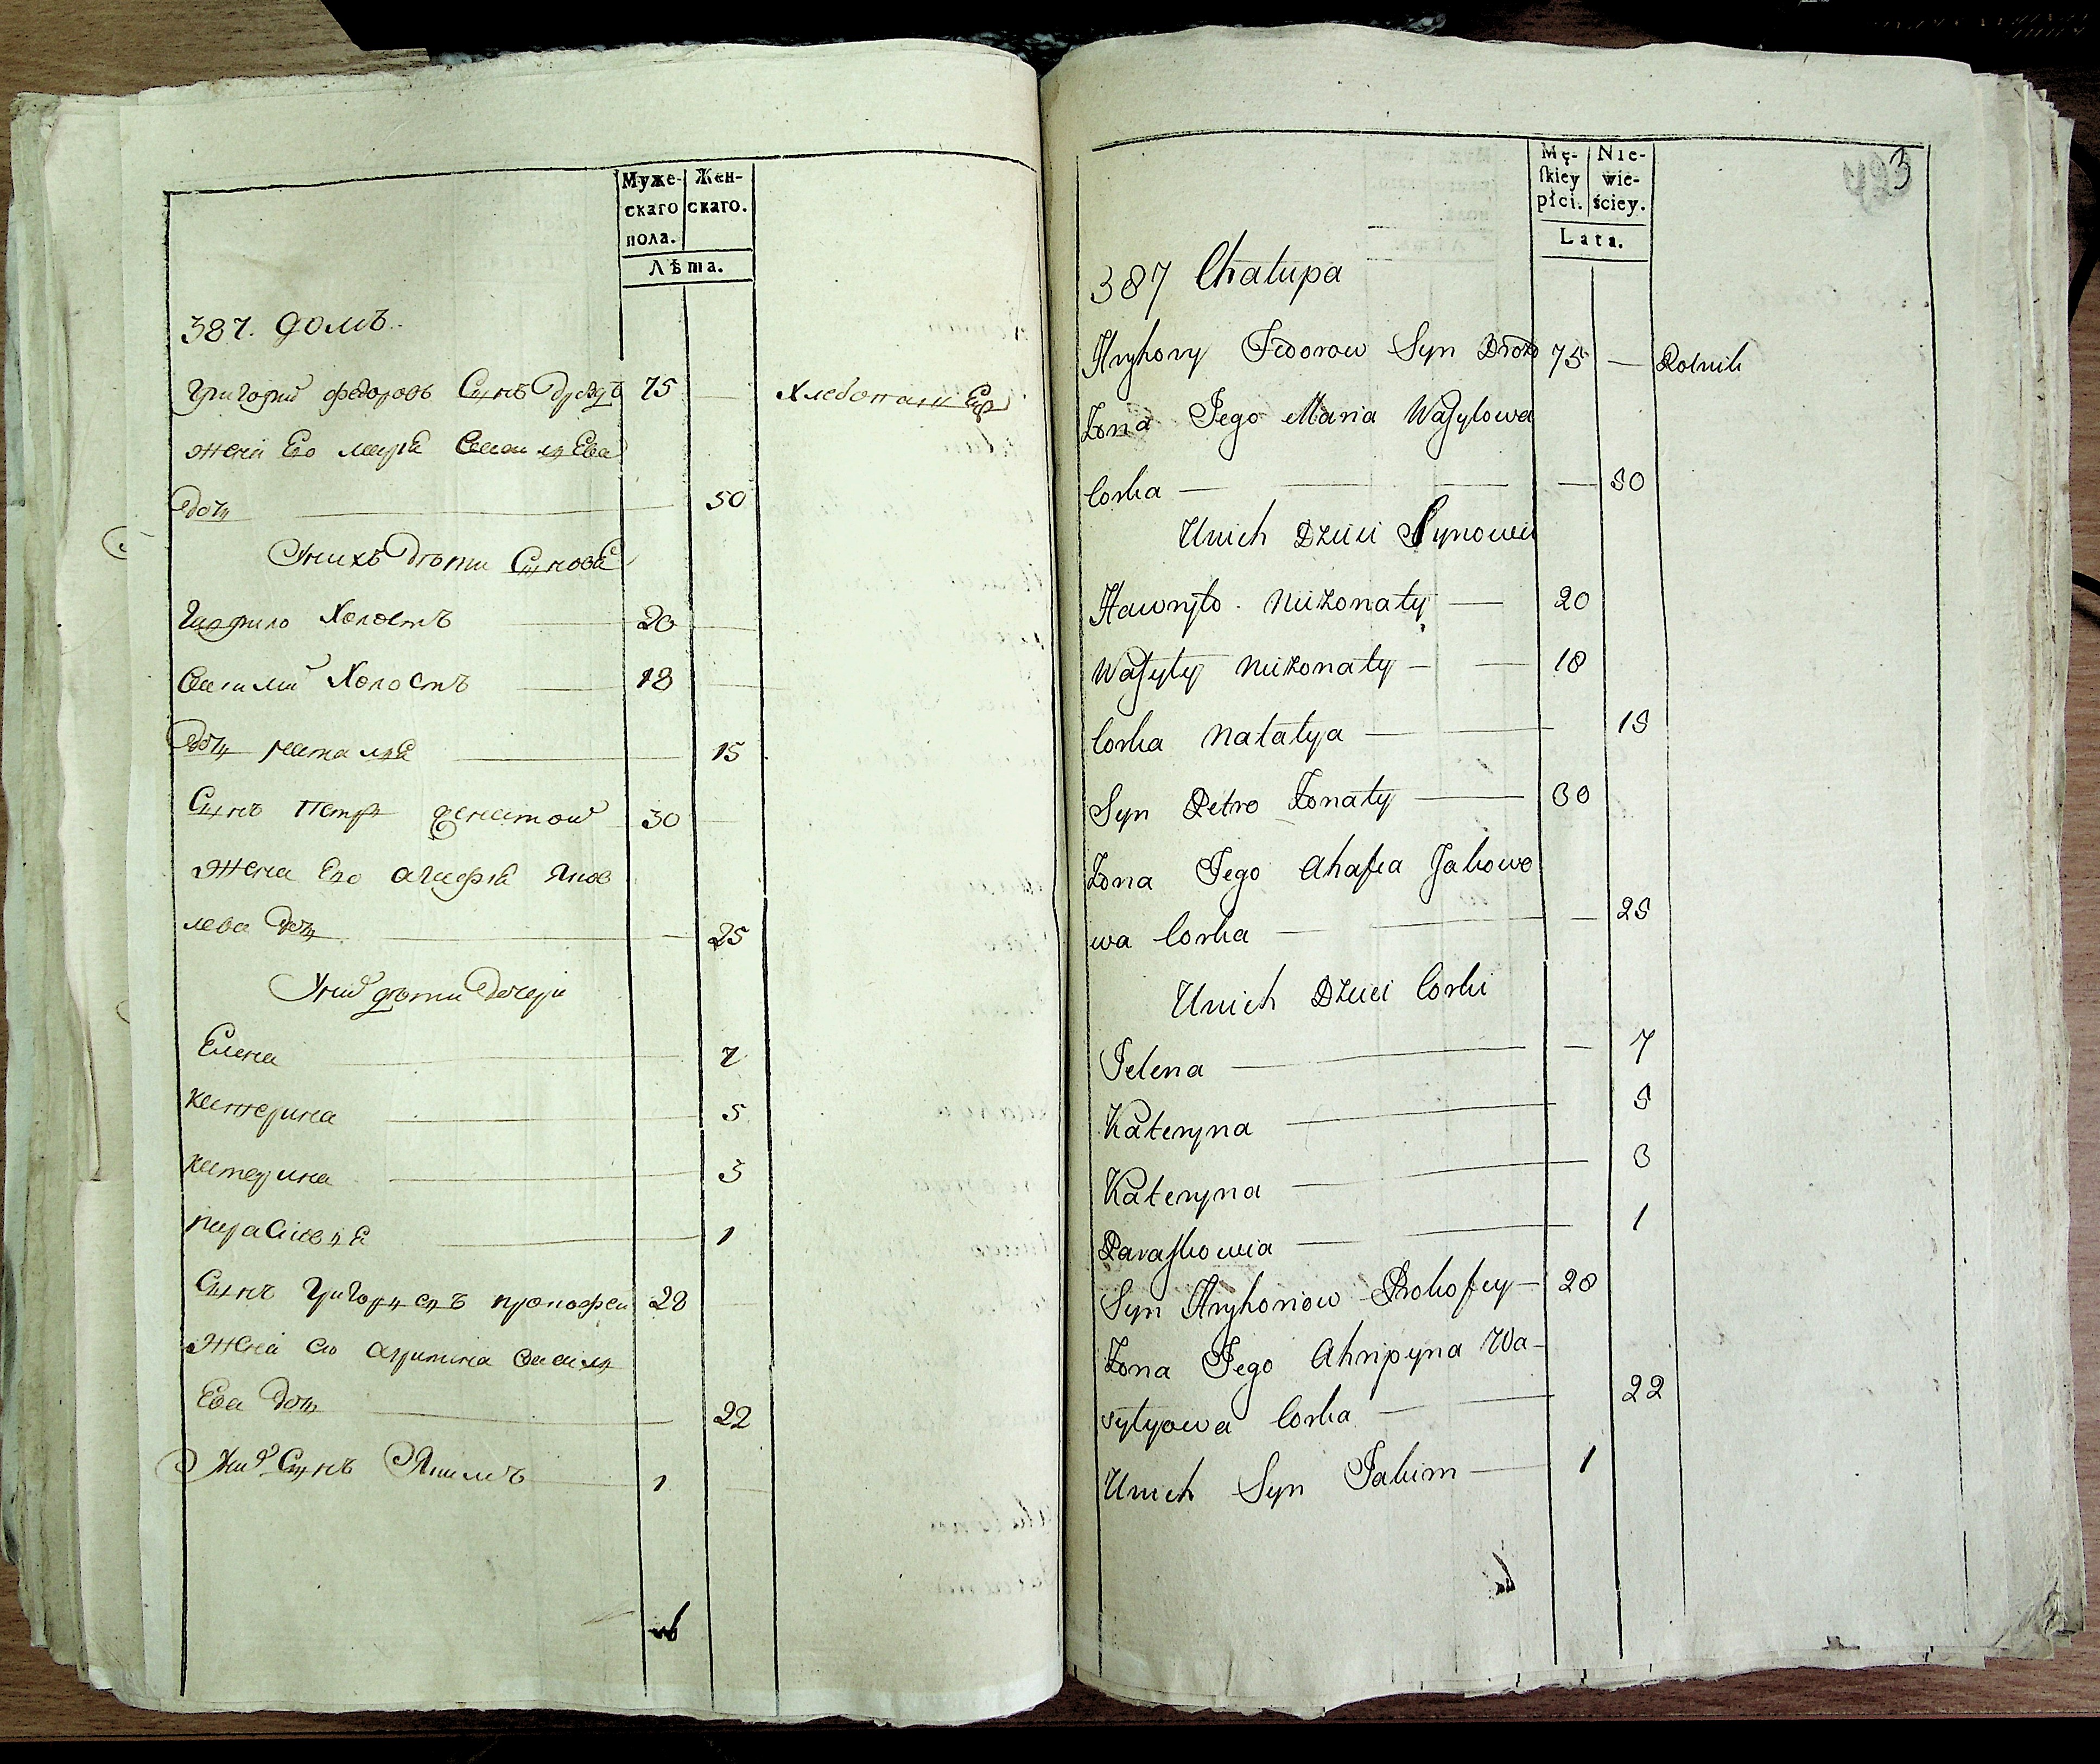 Муже- Жен-
скаго скаго.
пола.
Лѣта.
387. домъ.
Григорий федоровъ Сынъ Дроздъ 75 — Хлебопашецъ
жена Его марья Васильева
дочь — 50
Унихъ дѣти Сыновья
Гаврило Холостъ — 20 —
Василий Холостъ — 18 —
Дочь наталья — 15
Сынъ Петръ женатой 30 —
Жена Его агафья Яков
лева дочь — 25
Уних дѣти дочери
Елена — 7
катерина — 5
катерина — 3
парасковья — 1
Сынъ Григорьевъ прокофей 28 —
Жена его агрипина Василь
Ева дочь — 22
Уних Сынъ Якимъ — 1 —
423
Mę- Nie-
skiey wie-
płci. ściey.
Lata.
387 Chałupa
Hryhory Fedorow Syn Drozd 75 — Rolnik
Żona Jego Maria Wasylowa
Corka — 50
Unich Dzieci Synowie
Hawryło Nieżonaty — 20
Wasyly Nieżonaty — 18
Corka Natalya — 15
Syn Petro Żonaty — 30
Żona Jego Ahafia Jakowo
wa Corka — 25
Unich Dzieci Corki
Jelena — 7
Kateryna — 5
Kateryna — 3
Paraskowia — 1
Syn Hryhoriow Prokofey — 28
Żona Jego Ahripyna Wa-
sylyowa Corka — 22
Unich Syn Jakim — 1